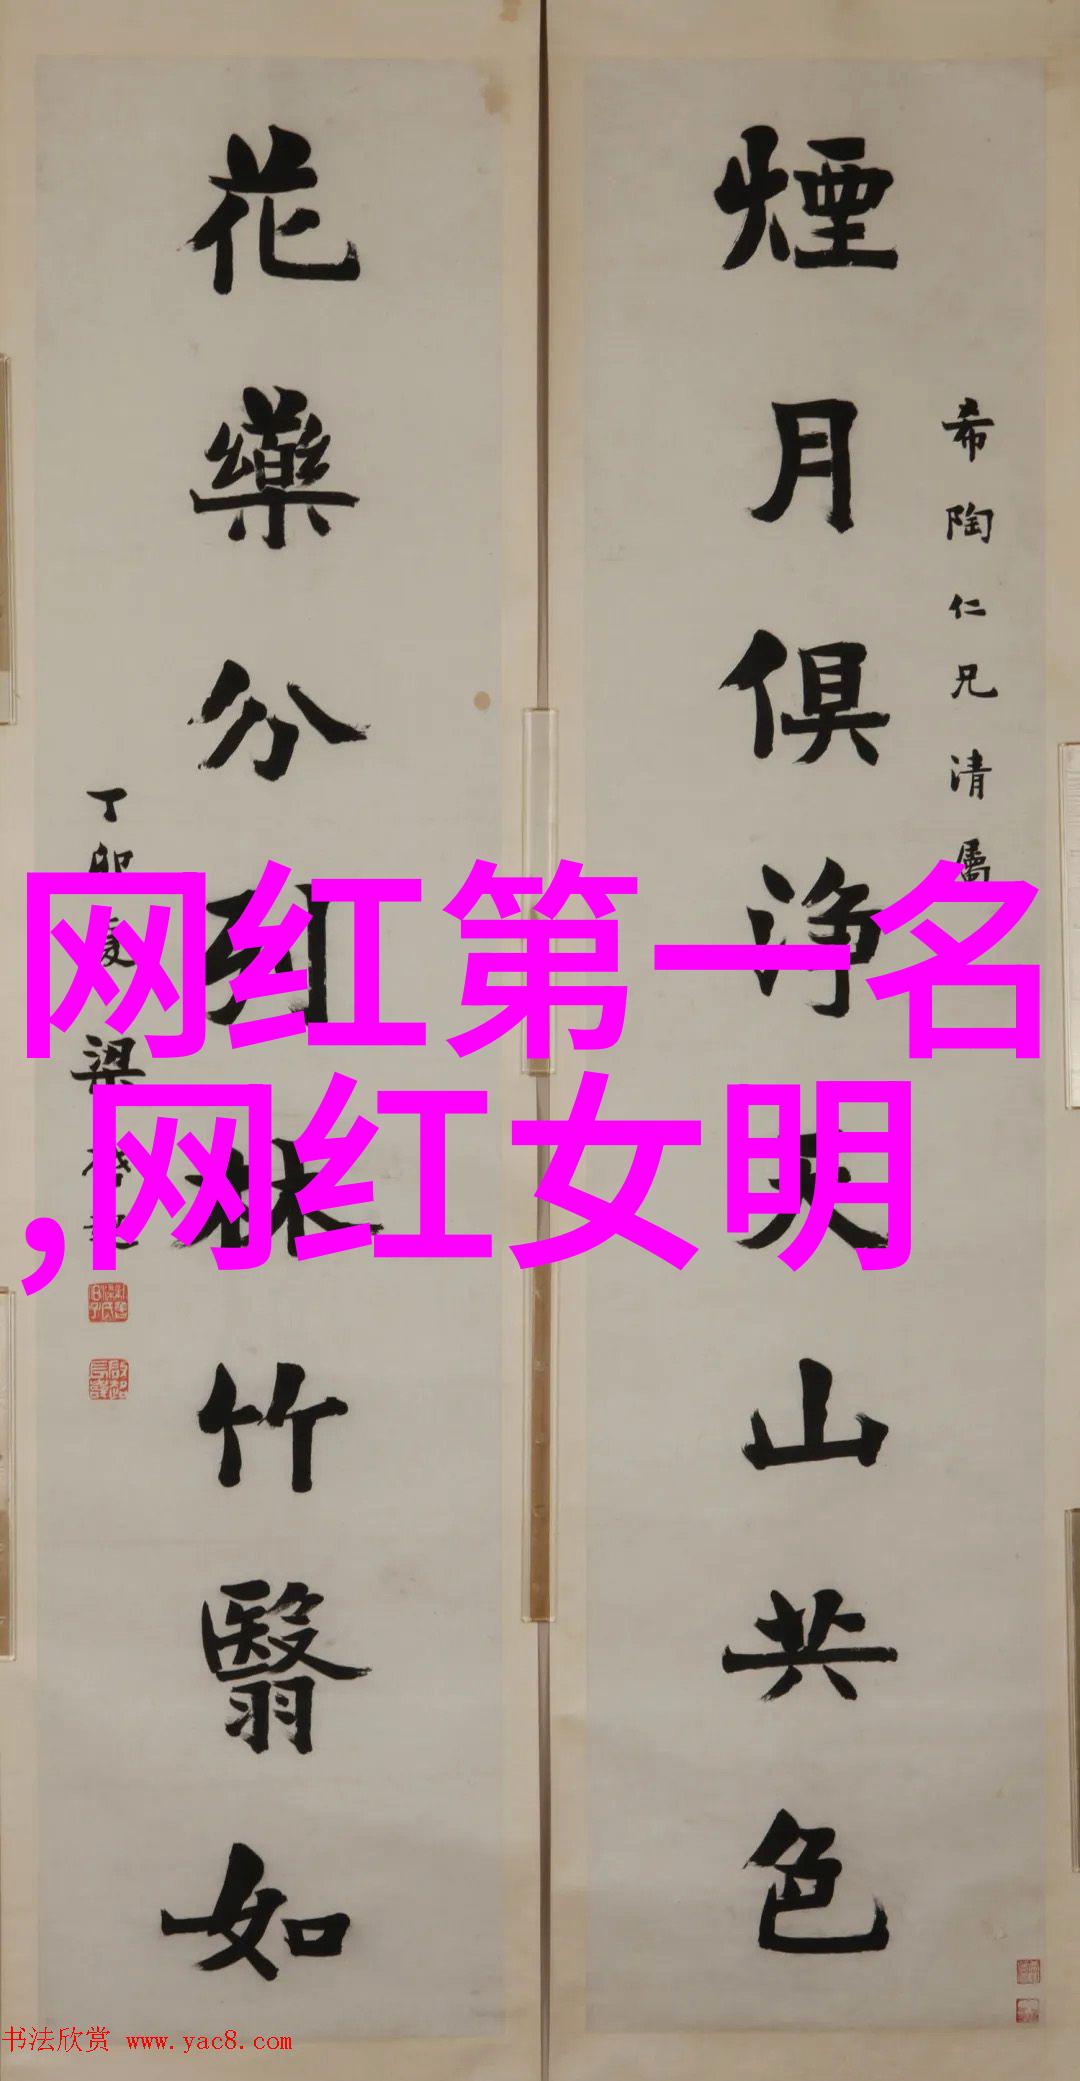 希陶仁兄清屬
煙月俱淨天山共色
花藥分列林竹翳如
丁卯夏梁啓超
网红第一名
,网红女明
书法欣赏 www.yac8.com